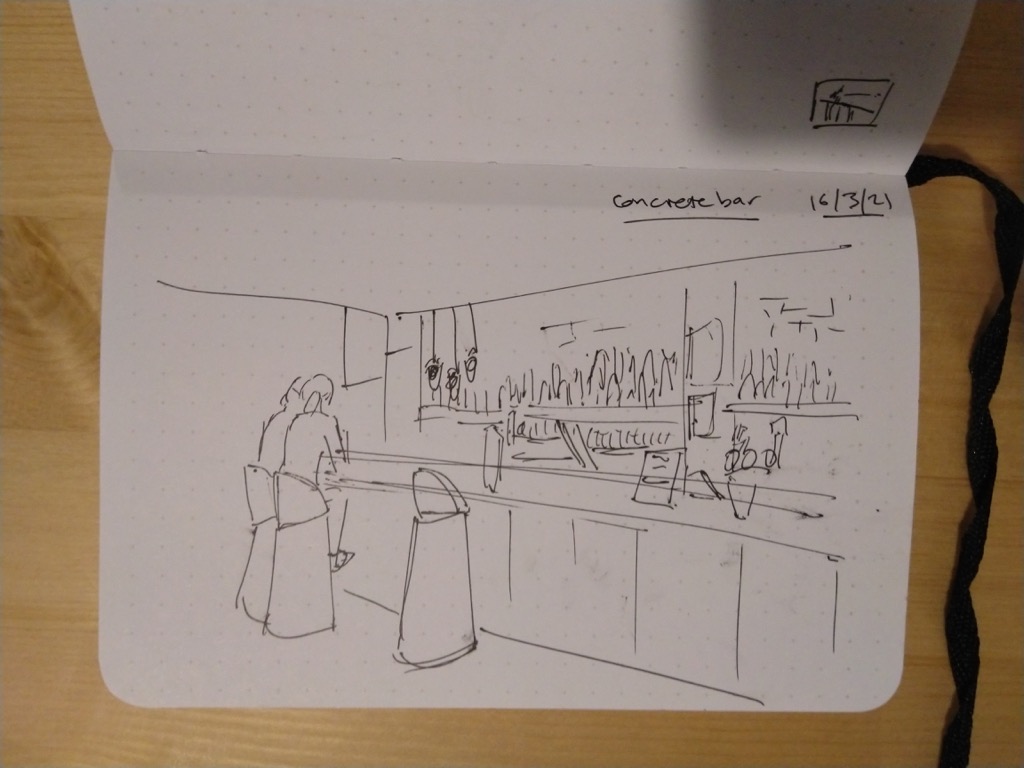 concrete bar 16/3/21